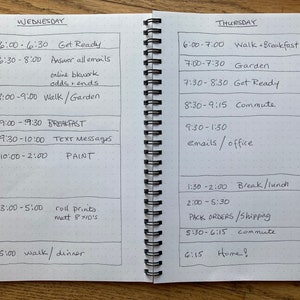 WEDNESDAY
6:00 - 6:30 Get Ready
6:30 - 8:00 Answer all emails
online bkwork
odds + ends
8:00 - 9:00 Walk / Garden
9:00 - 9:30 BREAKFAST
9:30 - 10:00 TEXT MESSAGES
10:00 - 2:00 PAINT
3:00 - 5:00 roll prints
matt 8"x10's
5:00 walk / dinner
THURSDAY
6:00 - 7:00 Walk + Breakfast
7:00 - 7:30 Garden
7:30 - 8:30 Get Ready
8:30 - 9:15 Commute
9:30 - 1:30
emails / office
1:30 - 2:00 Break / lunch
2:00 - 5:30
PACK ORDERS / Shipping
5:30 - 6:15 commute
6:15 Home!